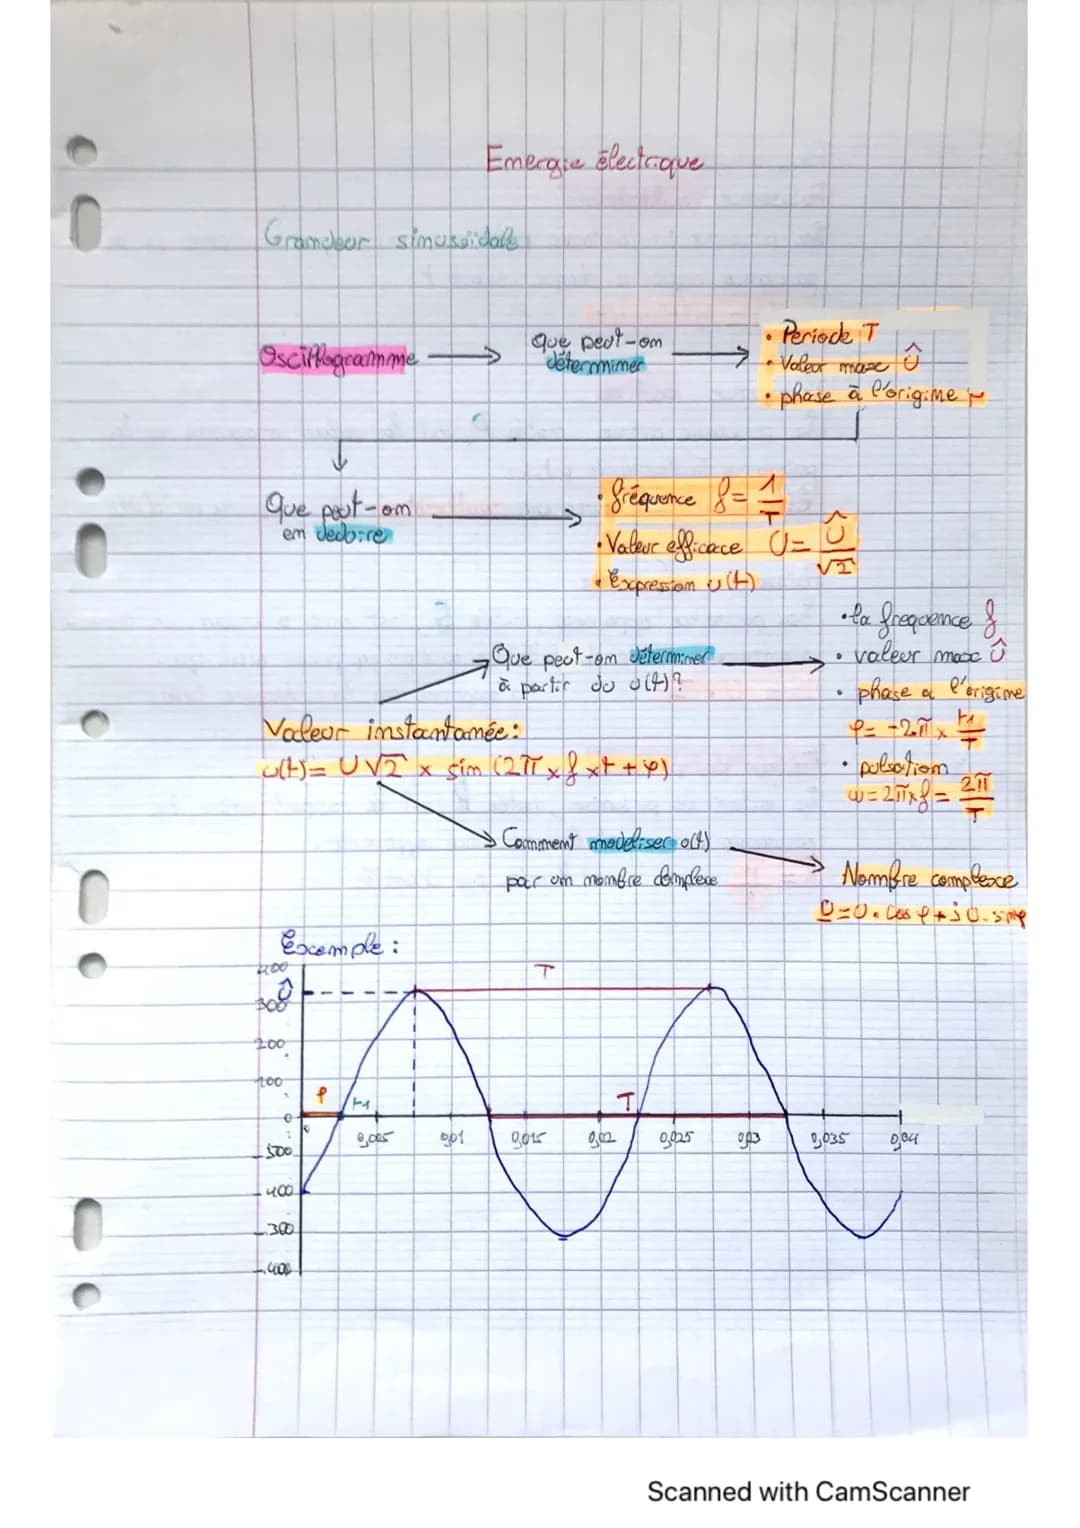 Energie électrique
Grandeur sinusoïdale
Oscillogramme
Que peut-on
déterminer
• Periode T
• Valeur max Û
• phase à l'origine φ
Que peut-on
en deduire
• fréquence f = 1/T
• Valeur efficace U = Û/√2
• Expression u(t)
Que peut-on déterminer
à partir du u(t)?
• la frequence f
• valeur max Û
• phase a l'origine
φ = -2π × t1/T
• pulsation
ω = 2π×f = 2π/T
Valeur instantanée:
u(t) = U√2 × sin (2π × f × t + φ)
Comment modeliser u(t)
par un nombre complexe
Nombre complexe
U = U. cos φ + j U. sin φ
Exemple :
400
Û
300
200
100
0
-400
-300
-400
T
φ
t1
T
0
0,005
0,01
0,015
0,02
0,025
0,03
0,035
0,04
Scanned with CamScanner